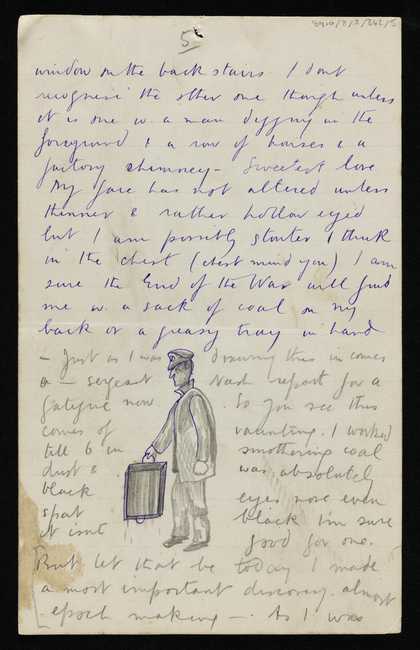 5
window on the back stairs. I dont
recognise the other one though unless
it is one w. a man digging in the
foreground & a row of houses & a
factory chimney – Sweetest love
My face has not altered unless
thinner & rather hollow eyed
but I am possibly stouter I think
in the chest (chest mind you) I am
sure the End of the War will find
me w. a sack of coal on my
back or a greasy tray in hand
– Just as I was drawing this in comes
a – sergeant Nash report for a
fatigue now. So you see this
comes of vaunting. I worked
till 6 in smothering coal
dust & was absolutely
black eyes nose even
spat black Im sure
it isnt good for one.
But let that be today I made
a most important discovery. almost
epoch making – . As I was